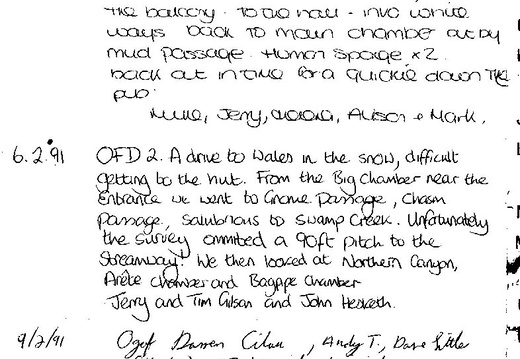 the balcony - to the hall - into white
ways back to main chamber out by
mud passage. Human Sponge x2.
back out in time for a quickie down the
pub.
Jerry, Alison + Mark.
6.2.91 OFD 2. A drive to Wales in the snow, difficult
getting to the hut. From the Big Chamber near the
Entrance we went to Gnome Passage, Chasm
Passage, Salubrious to Swamp Creek. Unfortunately
the survey ommited a 90ft pitch to the
Streamway! We then looked at Northern Canyon,
Arête Chamber and Bagpipe Chamber
Jerry and Tim Gilson and John Hesketh.
9/2/91 Ogof Darren Cilau, Andy T., Dave